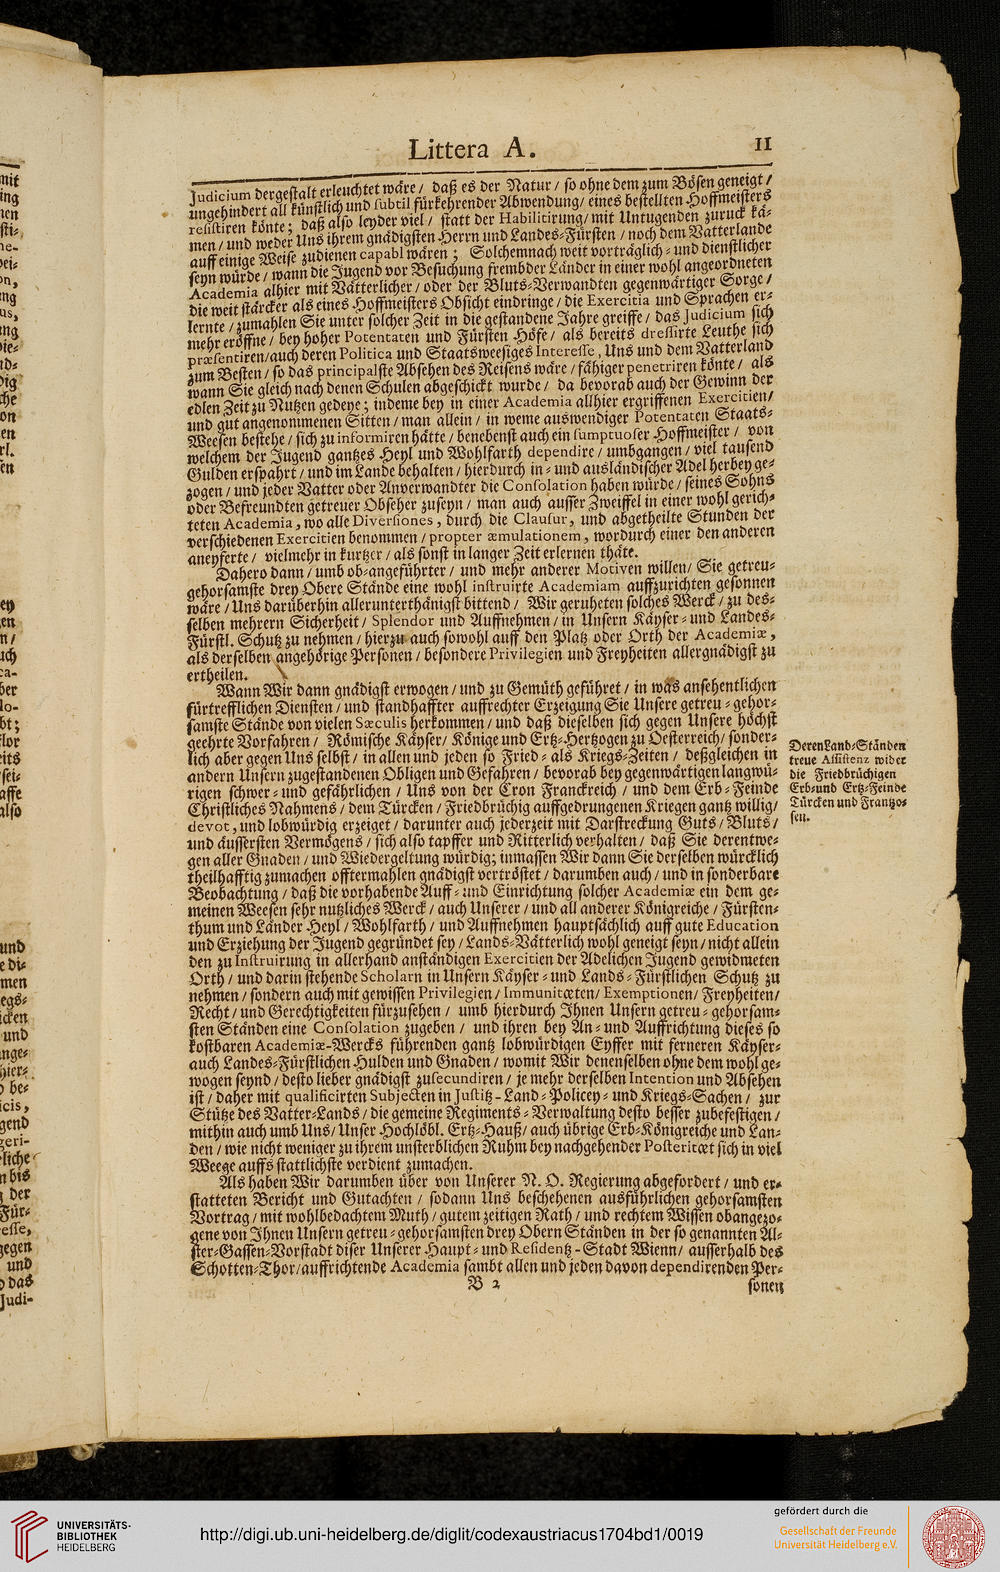 Littera A. 11
Judicium dergestalt erleuchtet wäre / daß es der Natur / so ohne dem zum Bösen geneigt /
ungehindert all künstlich und subtil fürkehrender Abwendung / eines bestellten Hoffmeisters
resistiren könte ; daß also leyder viel / statt der Habilitirung / mit Untugenden zuruck kä-
men / und weder Uns ihrem gnädigsten Herrn und Landes-Fürsten / noch dem Vatterlande
auff einige Weise zudienen capabl wären ; Solchemnach weit vorträglich- und dienstlicher
seyn würde / wann die Jugend vor Besuchung frembder Länder in einer wohl angeordneten
Academia alhier mit Vätterlicher / oder der Bluts-Verwandten gegenwärtiger Sorge /
die weit stärcker als eines Hoffmeisters Obsicht eindringe / die Exercitia und Sprachen er-
lernte / zumahlen Sie unter solcher Zeit in die gestandene Jahre greiffe / das Judicium sich
mehr eröffne / bey hoher Potentaten und Fürsten Höfe / als bereits dressirte Leuthe sich
præsentiren / auch deren Politica und Staatsweesiges Interesse, Uns und dem Vatterland
zum Besten / so das principalste Absehen des Reisens wäre / fähiger penetriren könte / als
wann Sie gleich nach denen Schulen abgeschickt wurde / da bevorab auch der Gewinn der
edlen Zeit zu Nutzen gedeye ; indeme bey in einer Academia allhier ergriffenen Exercitien /
und gut angenommenen Sitten / man allein / in weme auswendiger Potentaten Staats-
Weesen bestehe / sich zu informiren hätte / benebenst auch ein sumptuoser Hoffmeister / von
welchem der Jugend gantzes Heyl und Wohlfarth dependire / umbgangen / viel tausend
Gulden erspahrt / und im Lande behalten / hierdurch in- und ausländischer Adel herbey ge-
zogen / und jeder Vatter oder Anverwandter die Consolation haben würde / seines Sohns
oder Befreundten getreuer Obseher zuseyn / man auch ausser Zweiffel in einer wohl gerich-
teten Academia, wo alle Diversiones, durch die Clausur, und abgetheilte Stunden der
verschiedenen Exercitien benommen / propter æmulationem, wordurch einer den anderen
aneyferte / vielmehr in kurtzer / als sonst in langer Zeit erlernen thäte.
Dahero dann / umb ob-angeführter / und mehr anderer Motiven willen / Sie getreu-
gehorsamste drey Obere Stände eine wohl instruirte Academiam auffzurichten gesonnen
wäre / Uns darüberhin allerunterthänigst bittend / Wir geruheten solches Werck / zu des-
selben mehrern Sicherheit / Splendor und Auffnehmen / in Unsern Käyser- und Landes-
Fürstl. Schutz zu nehmen / hierzu auch sowohl auff den Platz oder Orth der Academiæ,
als derselben angehörige Personen / besondere Privilegien und Freyheiten allergnädigst zu
ertheilen.
Wann Wir dann gnädigst erwogen / und zu Gemüth geführet / in was ansehentlichen
fürtrefflichen Diensten / und standhaffter auffrechter Erzeigung Sie Unsere getreu-gehor-
samste Stände von vielen Sæculis herkommen / und daß dieselben sich gegen Unsere höchst
geehrte Vorfahren / Römische Käyser / Könige und Ertz-Hertzogen zu Oesterreich / sonder-
lich aber gegen Uns selbst / in allen und jeden so Fried- als Kriegs-Zeiten / deßgleichen in
andern Unsern zugestandenen Obligen und Gefahren / bevorab bey gegenwärtigen langwü-
rigen schwer- und gefährlichen / Uns von der Cron Franckreich / und dem Erb-Feinde
Christliches Nahmens / dem Türcken / Friedbrüchig auffgedrungenen Kriegen gantz willig /
devot, und lobwürdig erzeiget / darunter auch jederzeit mit Darstreckung Guts / Bluts /
und äussersten Vermögens / sich also tapffer und Ritterlich verhalten / daß Sie derentwe-
gen aller Gnaden / und Wiedergeltung würdig ; inmassen Wir dann Sie derselben würcklich
theilhafftig zumachen offtermahlen gnädigst vertröstet / darumben auch / und in sonderbare
Beobachtung / daß die vorhabende Auff- und Einrichtung solcher Academiæ ein dem ge-
meinen Weesen sehr nutzliches Werck / auch Unserer / und all anderer Königreiche / Fürsten-
thum und Länder Heyl / Wohlfarth / und Auffnehmen hauptsächlich auff gute Education
und Erziehung der Jugend gegründet sey / Lands-Vätterlich wohl geneigt seyn / nicht allein
den zu Instruirung in allerhand anständigen Exercitien der Adelichen Jugend gewidmeten
Orth / und darin stehende Scholarn in Unsern Käyser- und Lands-Fürstlichen Schutz zu
nehmen / sondern auch mit gewissen Privilegien / Immunitæten / Exemptionen / Freyheiten /
Recht / und Gerechtigkeiten fürzusehen / umb hierdurch Ihnen Unsern getreu-gehorsam-
sten Ständen eine Consolation zugeben / und ihren bey An- und Auffrichtung dieses so
kostbaren Academiæ-Wercks führenden gantz lobwürdigen Eyffer mit ferneren Käyser-
auch Landes-Fürstlichen Hulden und Gnaden / womit Wir denenselben ohne dem wohl ge-
wogen seynd / desto lieber gnädigst zusecundiren / je mehr derselben Intention und Absehen
ist / daher mit qualificirten Subjecten in Justitz-Land-Policey- und Kriegs-Sachen / zur
Stütze des Vatter-Lands / die gemeine Regiments-Verwaltung desto besser zubefestigen /
mithin auch umb Uns / Unser Hochlöbl. Ertz-Hauß / auch übrige Erb-Königreiche und Lan-
den / wie nicht weniger zu ihrem unsterblichen Ruhm bey nachgehender Posteritæt sich in viel
Weege auffs stattlichste verdient zumachen.
Als haben Wir darumben über von Unserer N. O. Regierung abgefordert / und er-
statteten Bericht und Gutachten / sodann Uns beschehenen ausführlichen gehorsamsten
Vortrag / mit wohlbedachtem Muth / gutem zeitigen Rath / und rechtem Wissen obangezo-
gene von Ihnen Unsern getreu-gehorsamsten drey Obern Ständen in der so genannten Al-
ster-Gassen-Vorstadt diser Unserer Haupt- und Residentz-Stadt Wienn / ausserhalb des
Schotten-Thor / auffrichtende Academia sambt allen und jeden davon dependirenden Per-
B 2 sonen
Deren Land-Ständen
treue Assistenz wider
die Friedbrüchigen
Erb- und Ertz-Feinde
Türcken und Frantzo-
sen.
UNIVERSITÄTS-
BIBLIOTHEK
HEIDELBERG
http://digi.ub.uni-heidelberg.de/diglit/codexaustriacus1704bd1/0019
gefördert durch die
Gesellschaft der Freunde
Universität Heidelberg e.V.